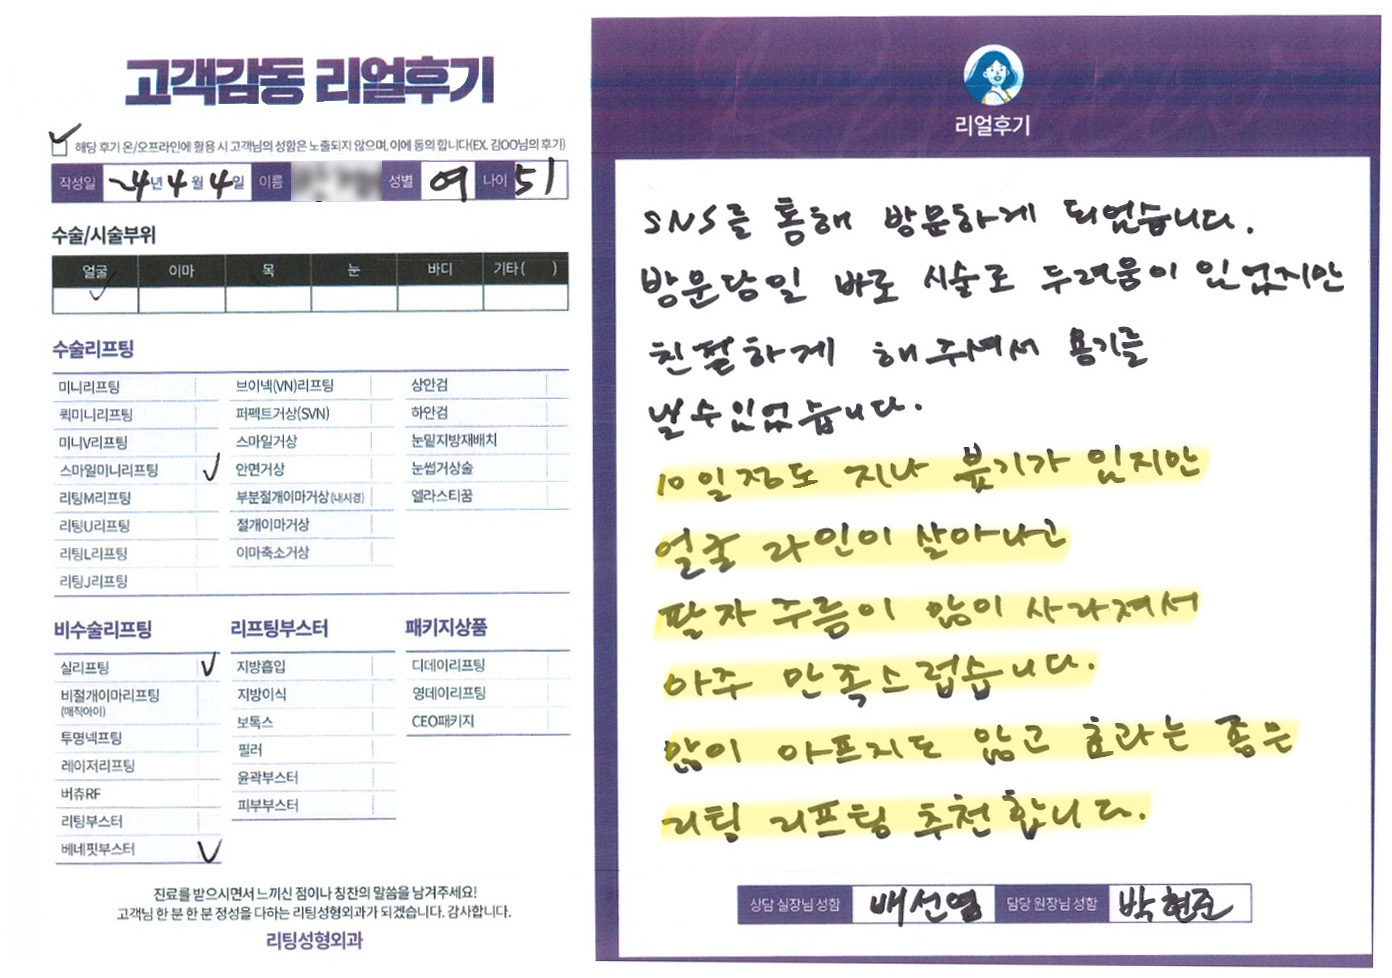 고객감동 리얼후기
해당 후기 온/오프라인에 활용 시 고객님의 성함은 노출되지 않으며, 이에 동의 합니다(EX. 김OO님의 후기)
작성일 24년 4월 4일 이름 성별 여 나이 51
수술/시술부위
얼굴 이마 목 눈 바디 기타 ( )
수술리프팅
미니리프팅 브이넥(VN)리프팅 상안검
퀵미니리프팅 퍼펙트거상(SVN) 하안검
미니V리프팅 스마일거상 눈밑지방재배치
스마일미니리프팅 안면거상 눈썹거상술
리팅M리프팅 부분절개이마거상(내시경) 엘라스티꿈
리팅U리프팅 절개이마거상
리팅L리프팅 이마축소거상
리팅J리프팅
비수술리프팅 리프팅부스터 패키지상품
실리프팅 지방흡입 디데이리프팅
비절개이마리프팅 지방이식 영데이리프팅
(매직아이)
보톡스 CEO패키지
투명넥프팅 필러
레이저리프팅 윤곽부스터
버츄RF 피부부스터
리팅부스터
베네핏부스터
진료를 받으시면서 느끼신 점이나 칭찬의 말씀을 남겨주세요!
고객님 한 분 한 분 정성을 다하는 리팅성형외과가 되겠습니다. 감사합니다.
리팅성형외과
리얼후기
SNS를 통해 방문하게 되었습니다.
방문당일 바로 시술로 두려움이 있었지만
친절하게 해주셔서 용기를
낼수있었습니다.
10일정도 지나 붓기가 있지만
얼굴 라인이 살아나고
팔자 주름이 많이 사라져서
아주 만족스럽습니다.
많이 아프지도 않고 효과는 좋은
리팅 리프팅 추천합니다.
상담 실장님 성함 배선영 담당 원장님 성함 박현준